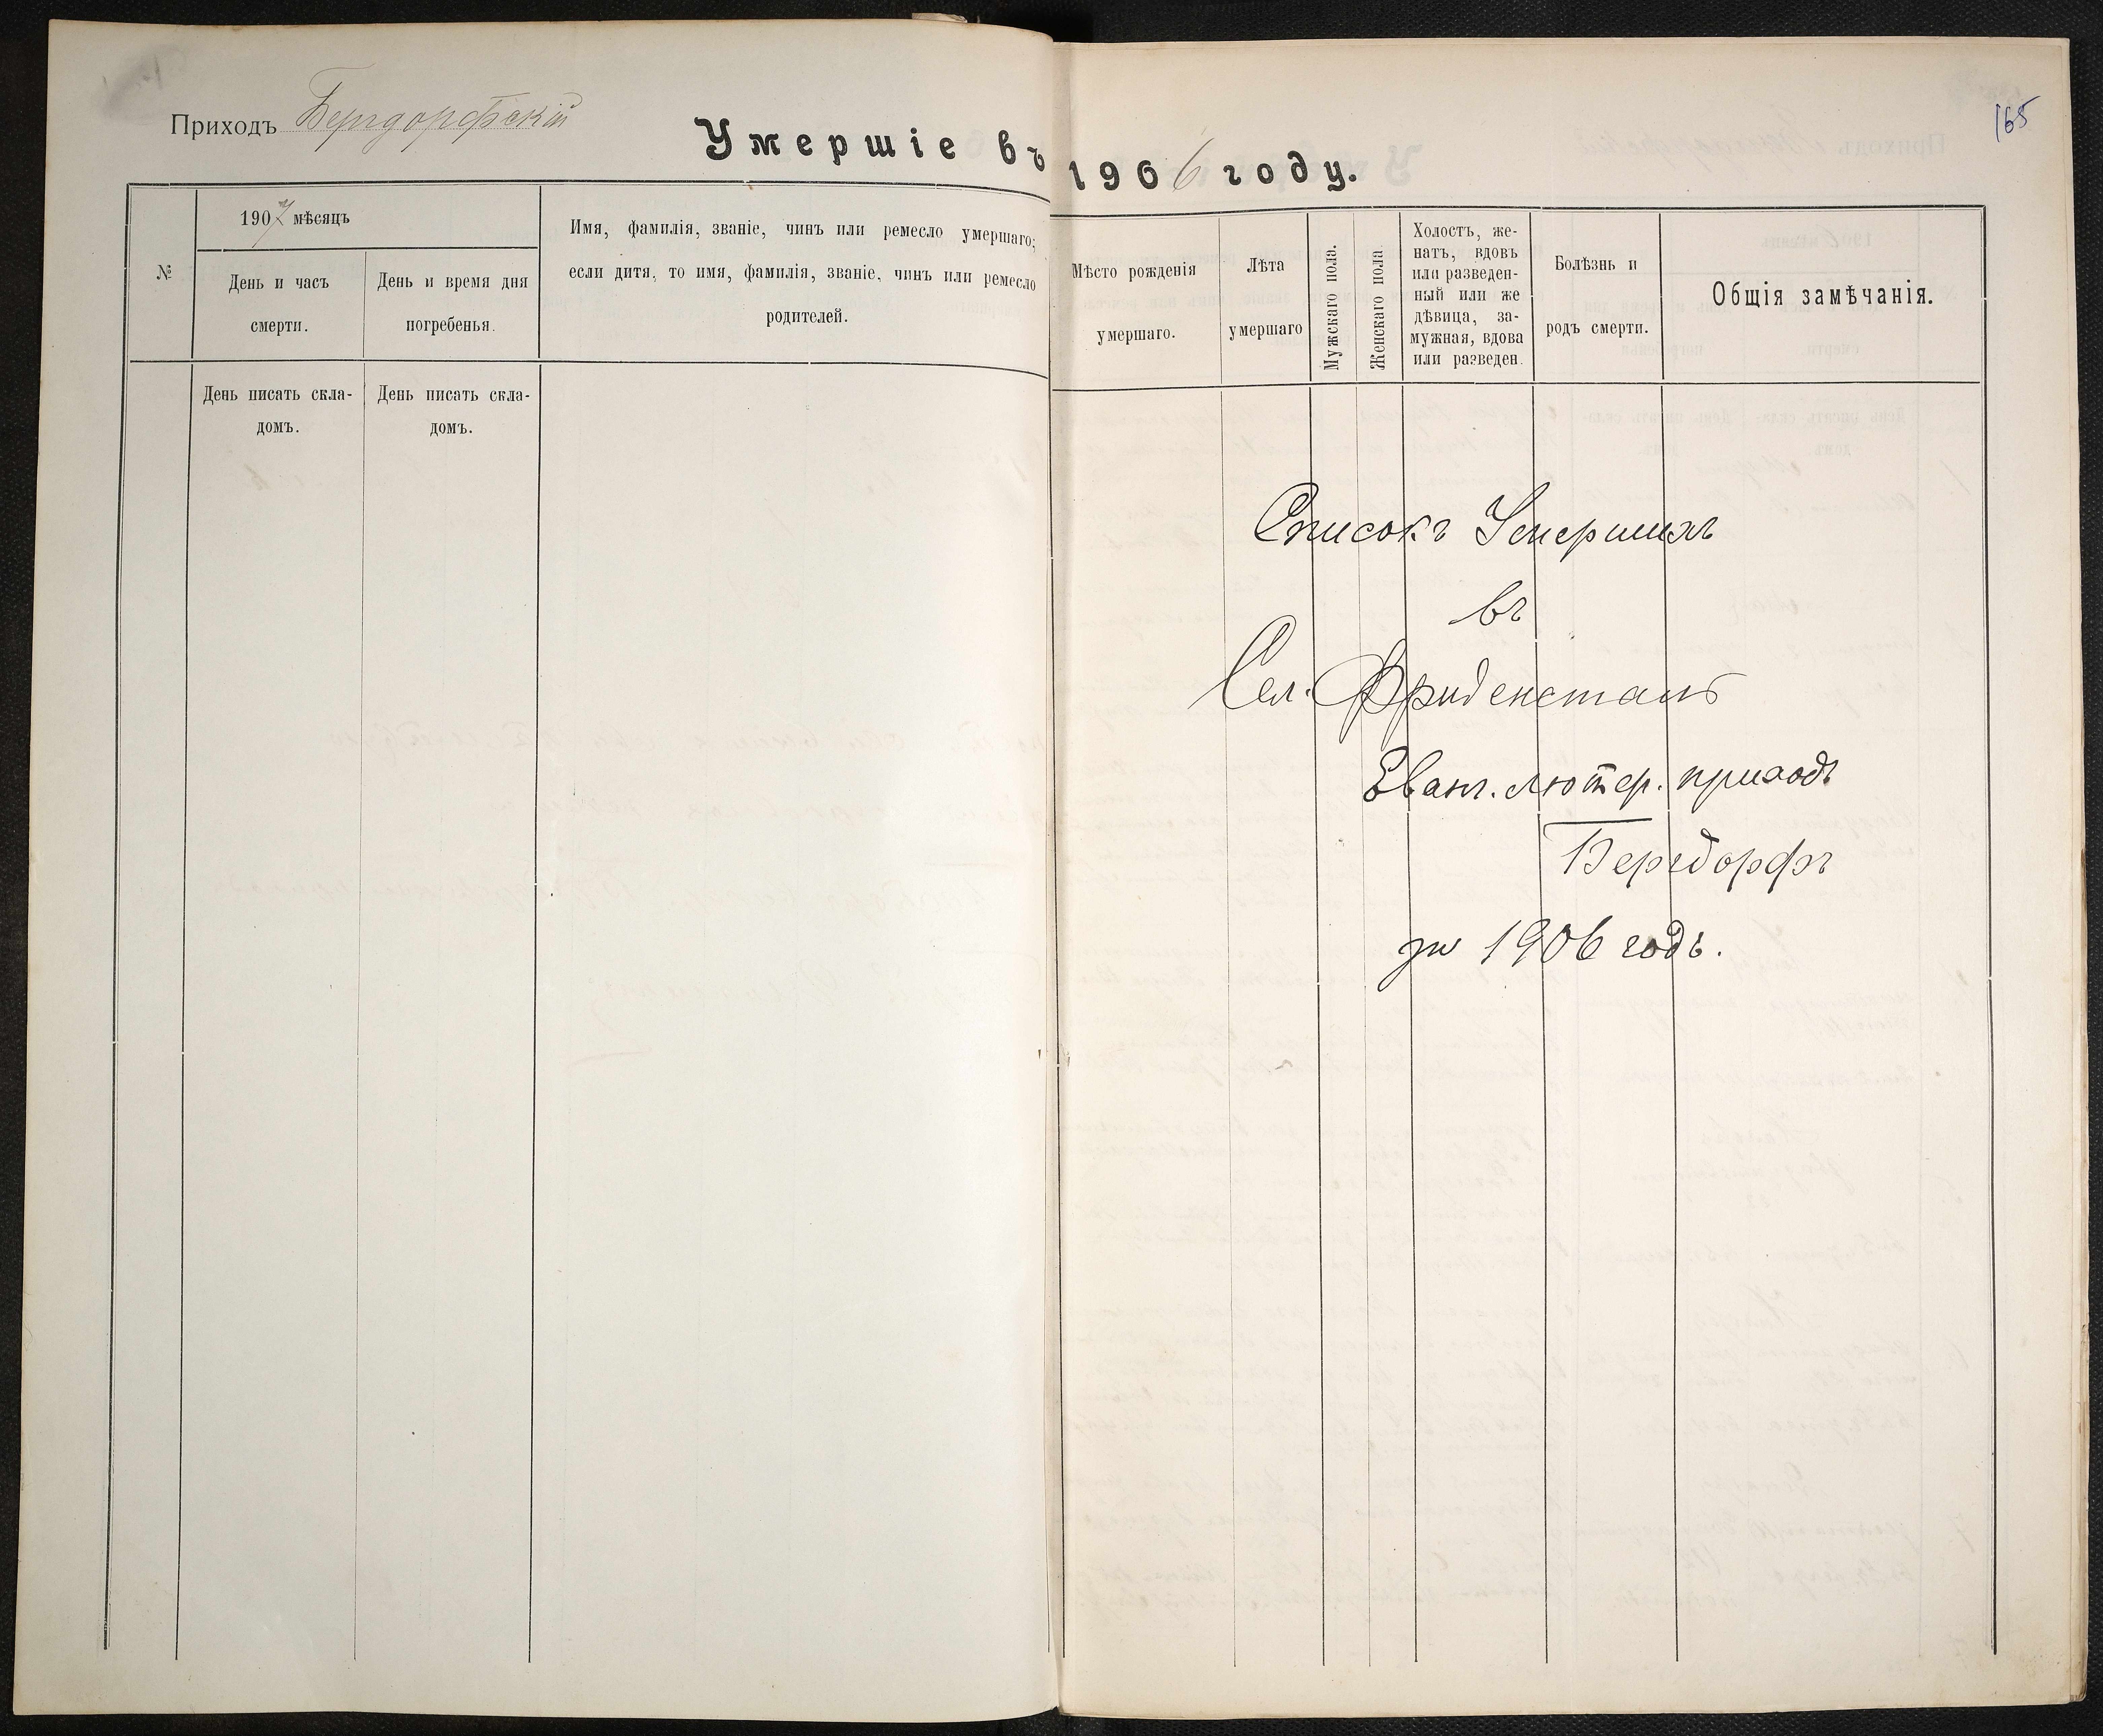 Приходъ Бергдорфскій
165
Умершіе въ 1906 году.
№
1907 мѣсяцъ
День и часъ
смерти.
День и время дня
погребенья.
Имя, фамилія, званіе, чинъ или ремесло умершаго;
если дитя, то имя, фамилія, званіе, чинъ или ремесло
родителей.
Мѣсто рожденія
умершаго.
Лѣта
умершаго
Мужскаго пола.
Женскаго пола
Холостъ, же-
натъ, вдовъ
или разведен-
ный или же
дѣвица, за-
мужная, вдова
или разведен.
Болѣзнь и
родъ смерти.
Общія замѣчанія.
День писать скла-
домъ.
День писать скла-
домъ.
Списокъ Умершихъ
въ
Сел. Фриденсталь
Еванг. лютер. приходъ
Бергдорфъ
за 1906 годъ.